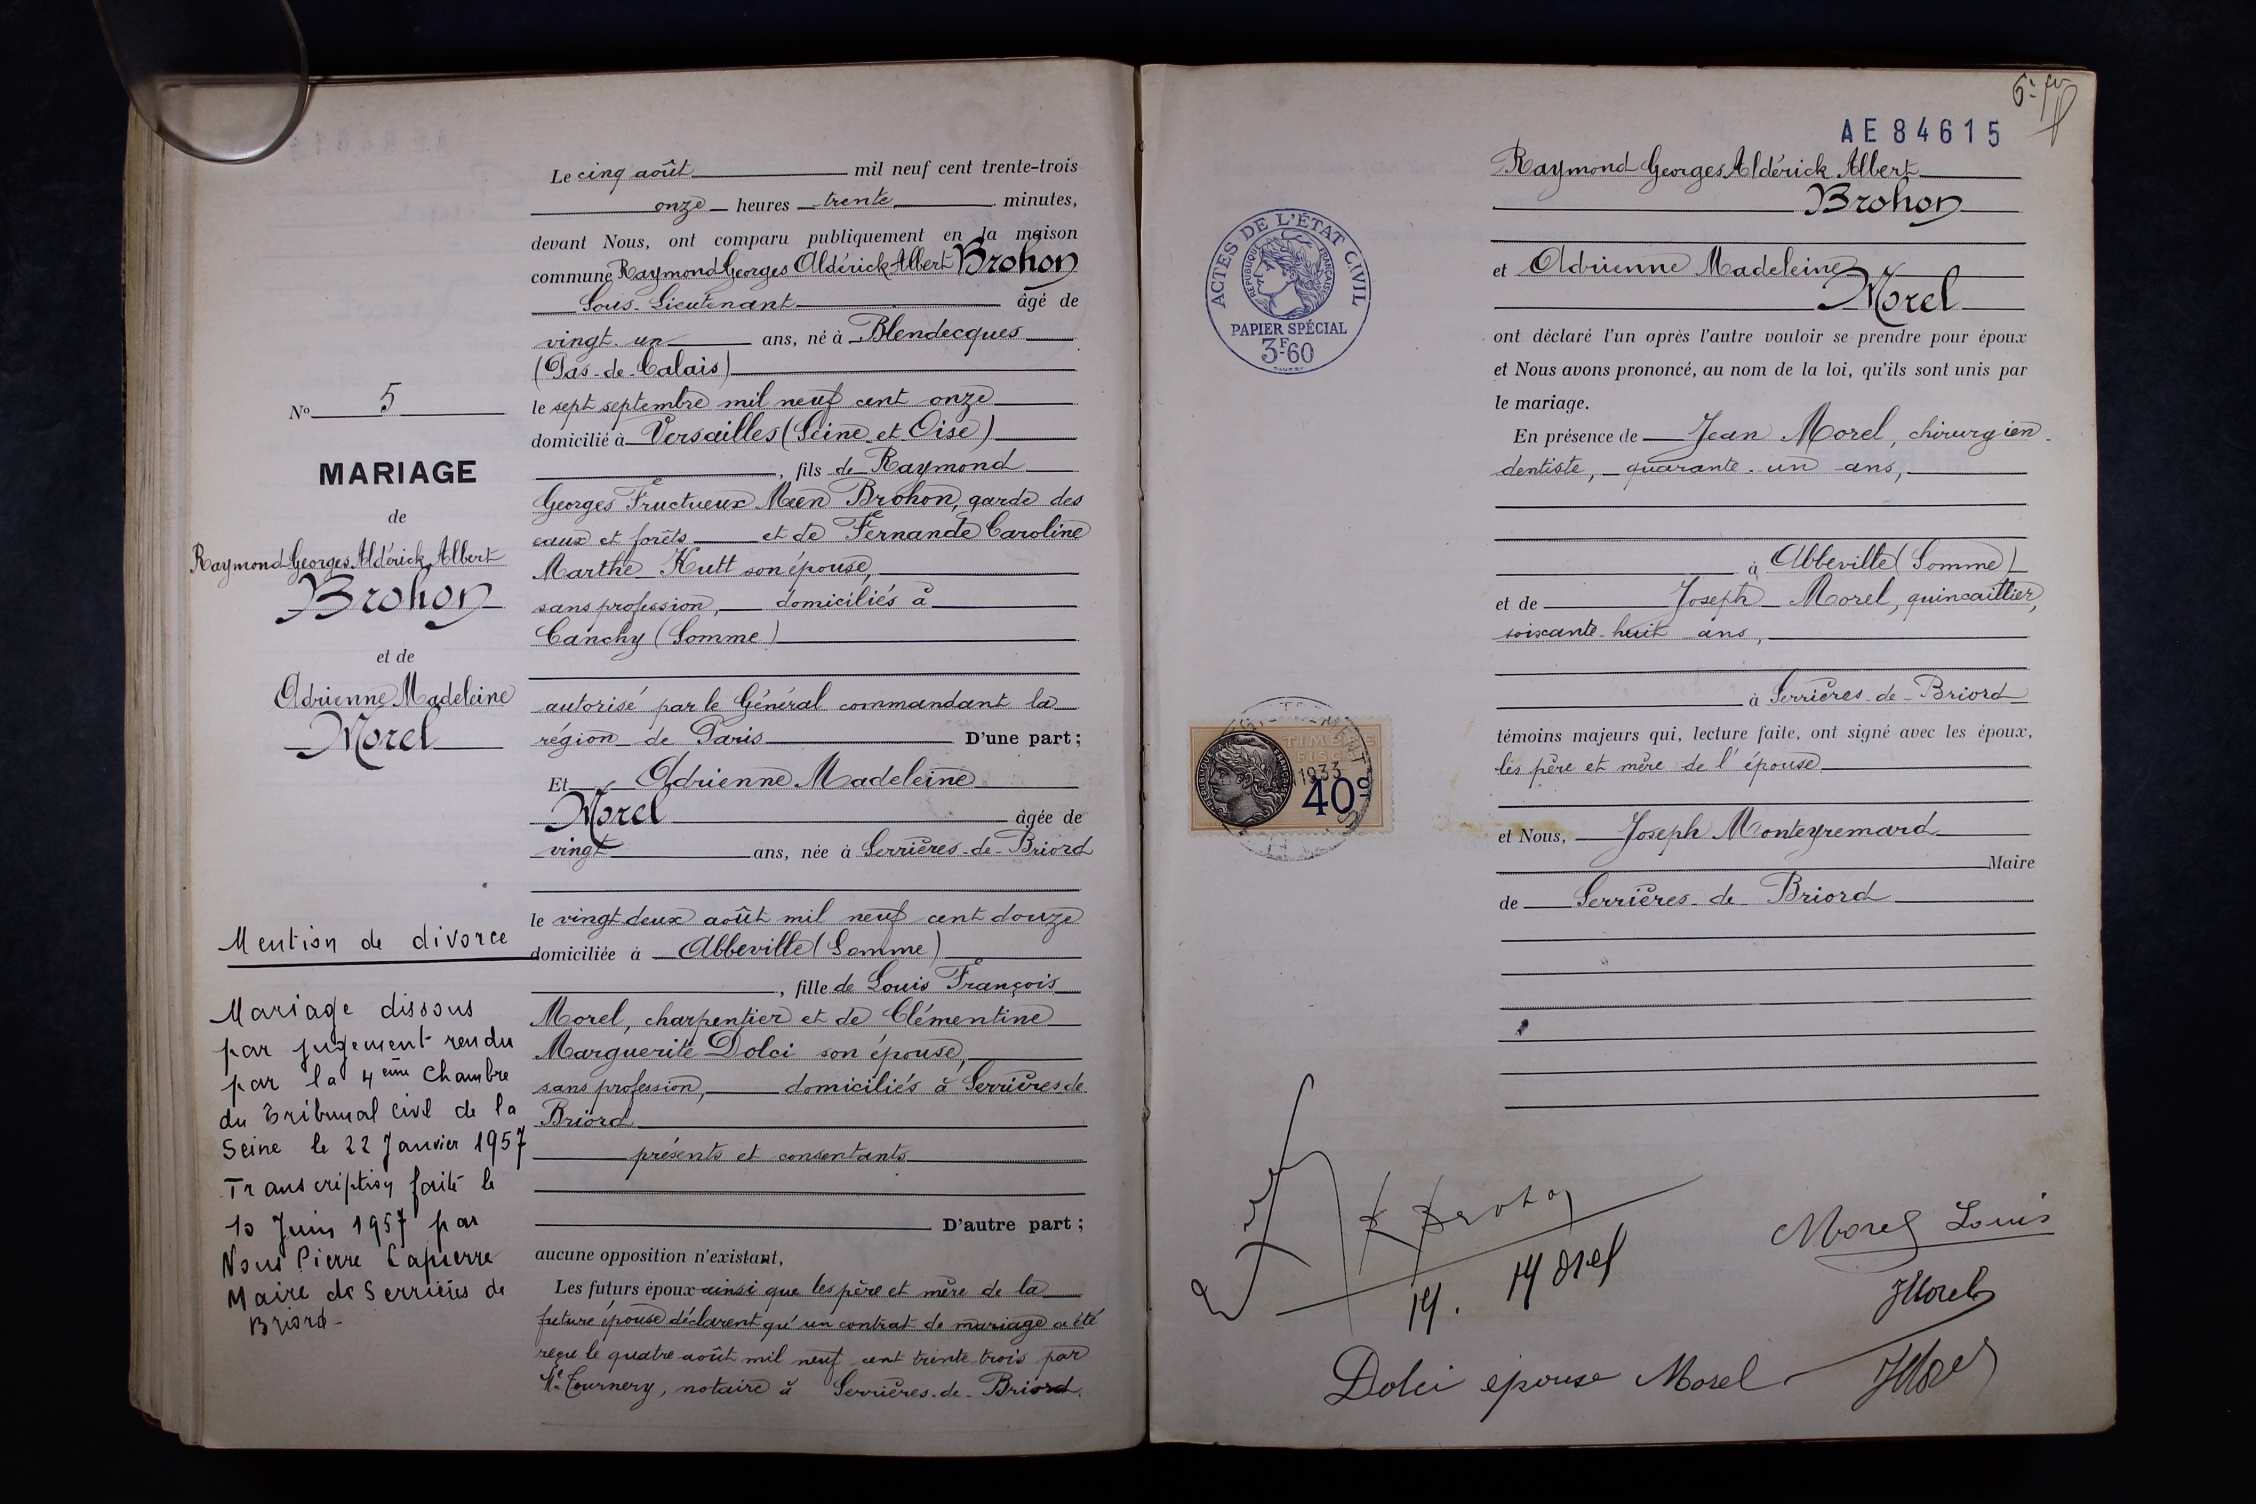 Le cinq août mil neuf cent trente-trois
onze heures trente minutes,
devant Nous, ont comparu publiquement en la maison
commune Raymond Georges Aldérick Albert Brohon
Sous-Lieutenant âgé de
vingt-un ans, né à Blendecques
(Pas-de-Calais)
le sept septembre mil neuf cent onze
domicilié à Versailles (Seine et Oise)
, fils de Raymond
Georges Fructueux Méen Brohon, garde des
eaux et forêts et de Fernande Caroline
Marthe Kutt son épouse,
sans profession, domiciliés à
Canchy (Somme)
autorisé par le Général commandant la
région de Paris D'une part;
Et Adrienne Madeleine
Morel âgée de
vingt ans, née à Serrières-de-Briord
le vingt deux août mil neuf cent douze
domiciliée à Abbeville (Somme)
, fille de Louis François
Morel, charpentier et de Clémentine
Marguerite Dolci son épouse,
sans profession, domiciliés à Serrières de
Briord
présents et consentants
D'autre part;
aucune opposition n'existant,
Les futurs époux ainsi que les père et mère de la
future épouse déclarent qu'un contrat de mariage a été
reçu le quatre août mil neuf cent trente-trois par
Me Tournery, notaire à Serrières-de-Briord.
No 5
MARIAGE
de
Raymond Georges Aldérick Albert
Brohon
et de
Adrienne Madeleine
Morel
Mention de divorce
Mariage dissous
par jugement rendu
par la 4ème Chambre
du Tribunal Civil de la
Seine le 22 Janvier 1957
Transcription faite le
10 Juin 1957 par
Nous Pierre Lapierre
Maire de Serrières de
Briord
AE 84615
Raymond Georges Aldérick Albert
Brohon
et Adrienne Madeleine
Morel
ont déclaré l'un après l'autre vouloir se prendre pour époux
et Nous avons prononcé, au nom de la loi, qu'ils sont unis par
le mariage.
En présence de Jean Morel, chirurgien-
dentiste, quarante-un ans,
à Abbeville (Somme)
et de Joseph Morel, quincaillier,
soixante-huit ans,
à Serrières-de-Briord
témoins majeurs qui, lecture faite, ont signé avec les époux,
les père et mère de l'épouse
et Nous, Joseph Monteyremard
Maire
de Serrières-de-Briord
ACTES DE L'ÉTAT CIVIL
RÉPUBLIQUE FRANÇAISE
PAPIER SPÉCIAL
3F60
TIMBRE
FISCAL
1933
40c
R Brohon
M. Morel
Morel Louis
JMorel
Dolci épouse Morel
JMorel